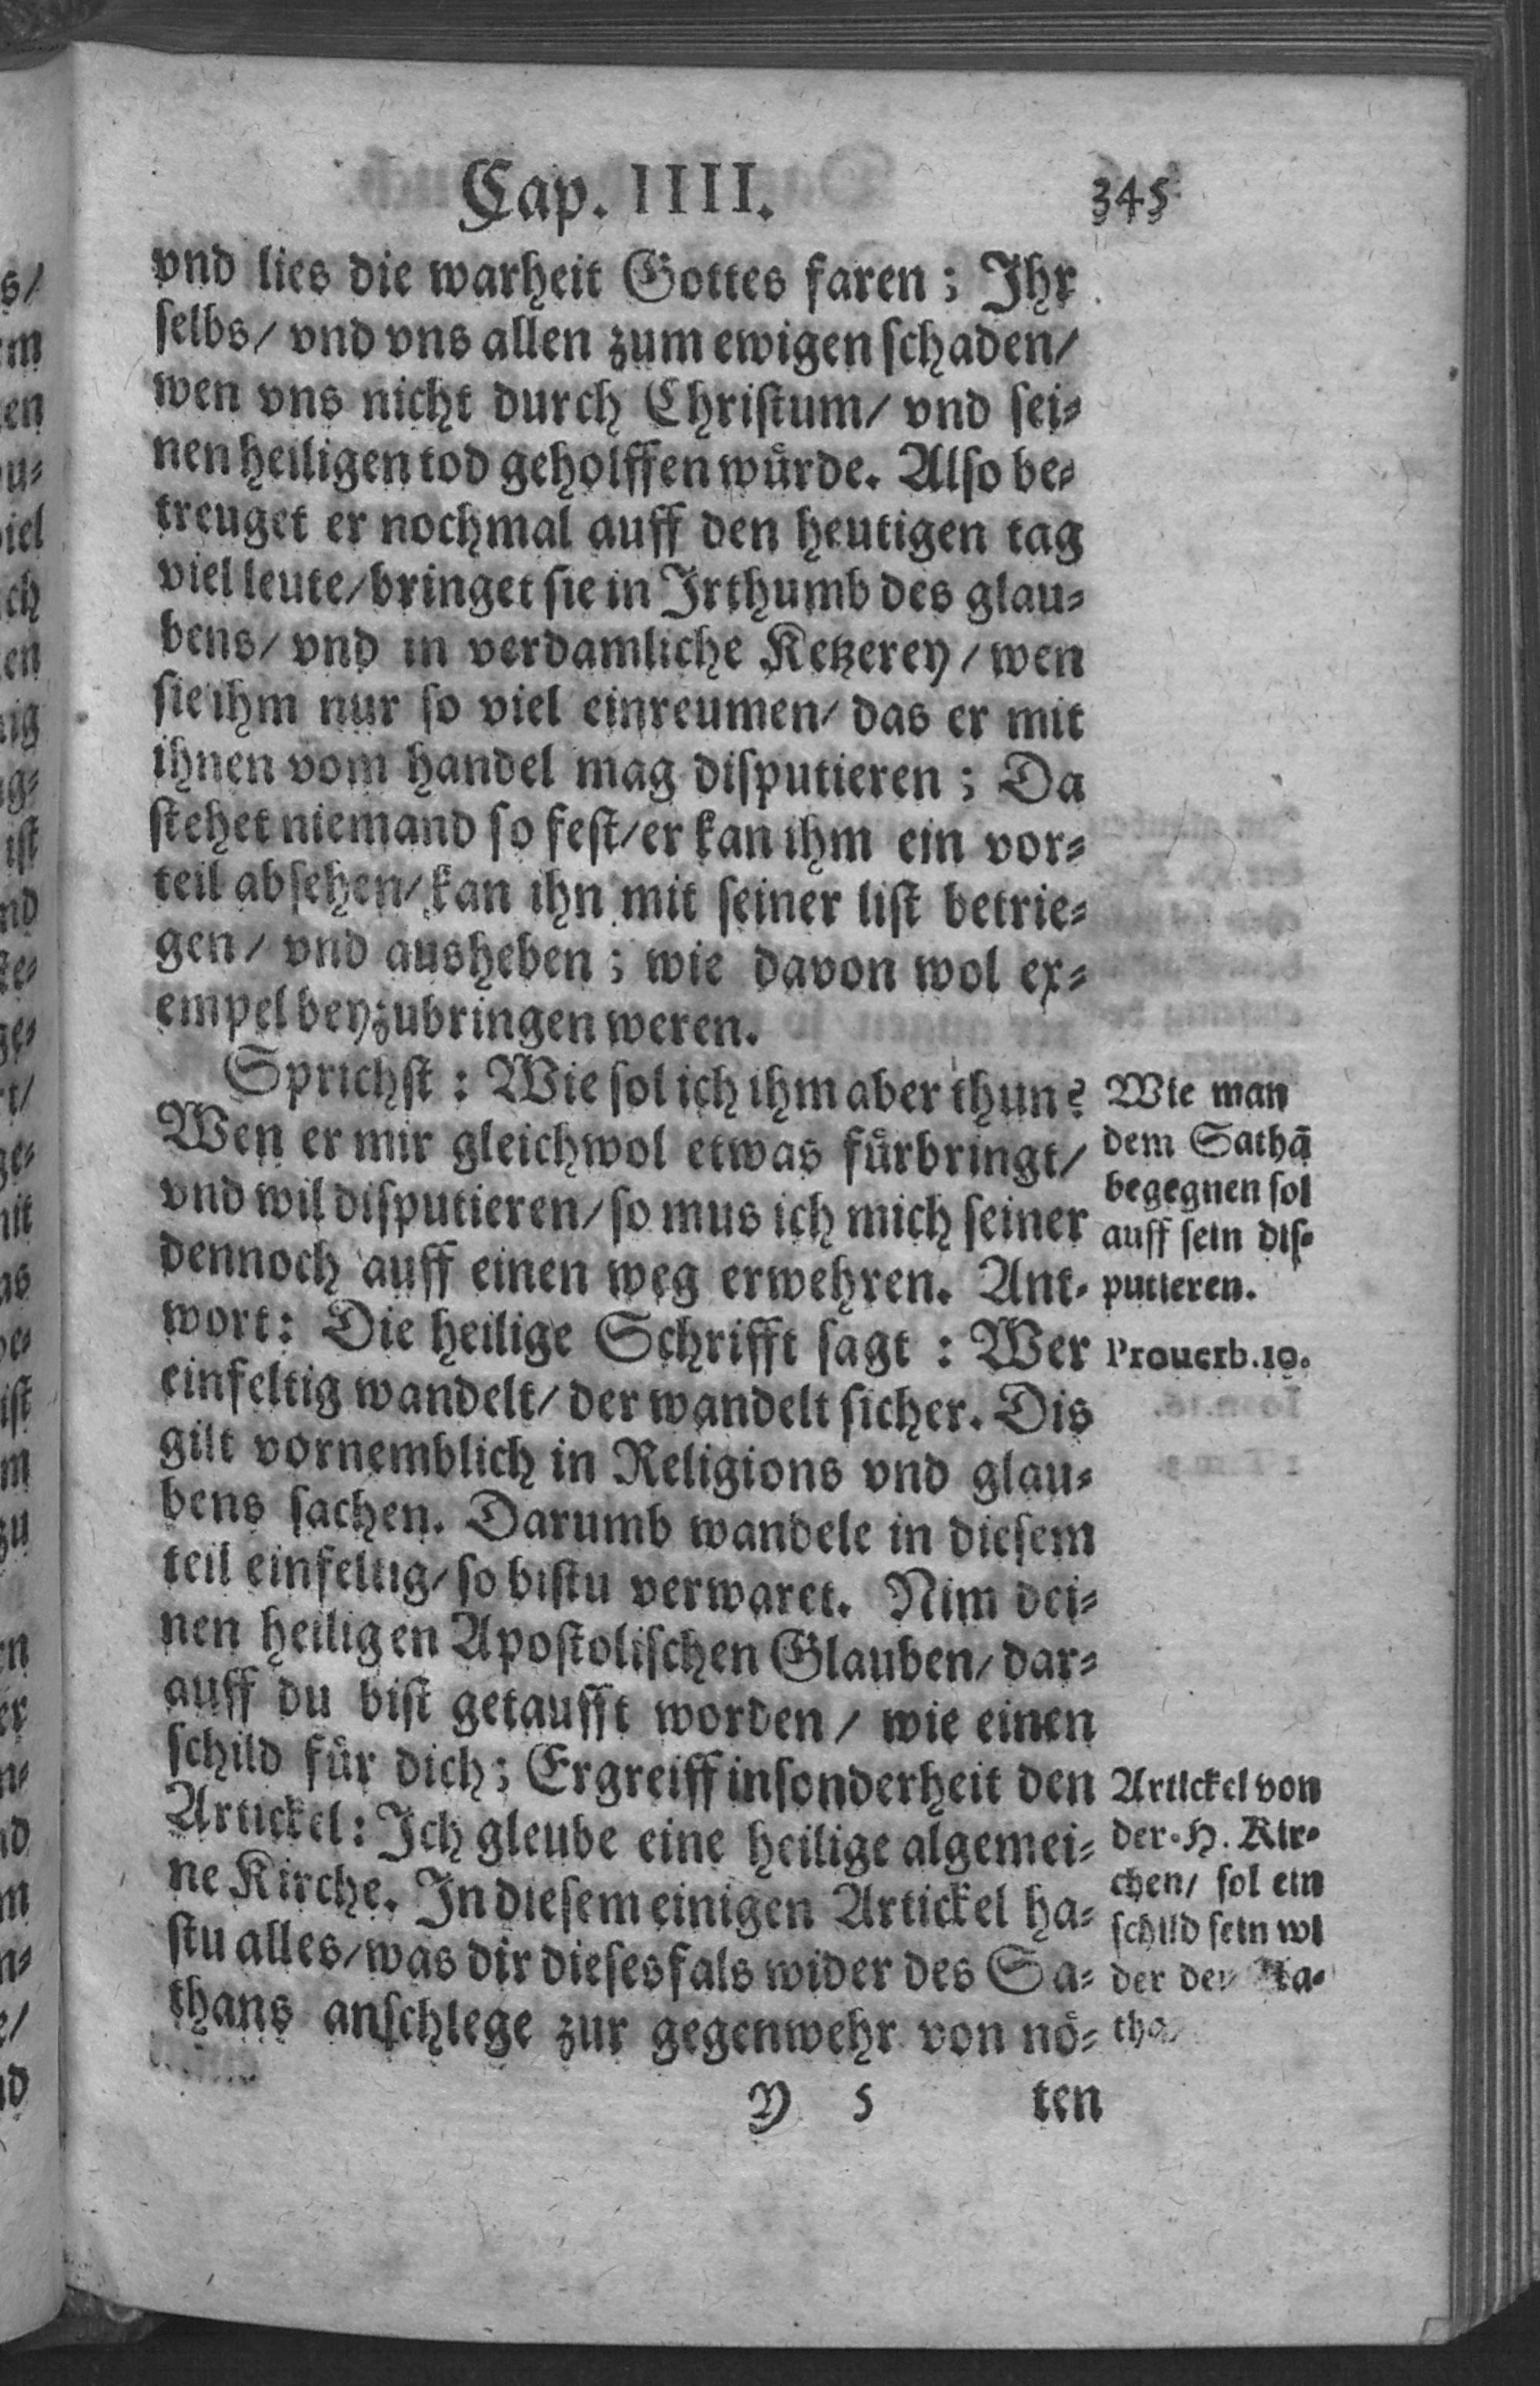 Cap. IIII. 345
vnd lies die warheit Gottes faren; Ihr
selbs/ vnd vns allen zum ewigen schaden/
wen vns nicht durch Christum/ vnd sei-
nen heiligen tod geholffen würde. Also be-
treuget er nochmal auff den heutigen tag
viel leute/ bringet sie in Irthumb des glau-
bens/ vnd in verdamliche Ketzerey/ wen
sie ihm nur so viel einreumen/ das er mit
ihnen vom handel mag disputieren; Da
stehet niemand so fest/ er kan ihm ein vor-
teil absehen/ kan ihn mit seiner list betrie-
gen/ vnd ausheben; wie davon wol ex-
empel beyzubringen weren.
Sprichst: Wie sol ich ihm aber thun?
Wen er mir gleichwol etwas fürbringt/
vnd wil disputieren/ so mus ich mich seiner
dennoch auff einen weg erwehren. Ant-
wort: Die heilige Schrifft sagt: Wer
einfeltig wandelt/ der wandelt sicher. Dis
gilt vornemblich in Religions vnd glau-
bens sachen. Darumb wandele in diesem
teil einfeltig/ so bistu verwaret. Nim dei-
nen heiligen Apostolischen Glauben/ dar-
auff du bist getaufft worden/ wie einen
schild für dich; Ergreiff insonderheit den
Artickel: Ich gleube eine heilige algemei-
ne Kirche. In diesem einigen Artickel ha-
stu alles/ was dir dieses fals wider des Sa-
thans anschlege zur gegenwehr von nö-
Y 5 ten
Wie man
dem Sathā
begegnen sol
auff sein dis-
putieren.
Prouerb.10.
Artickel von
der H. Kir-
chen/ sol ein
schild sein wi
der den